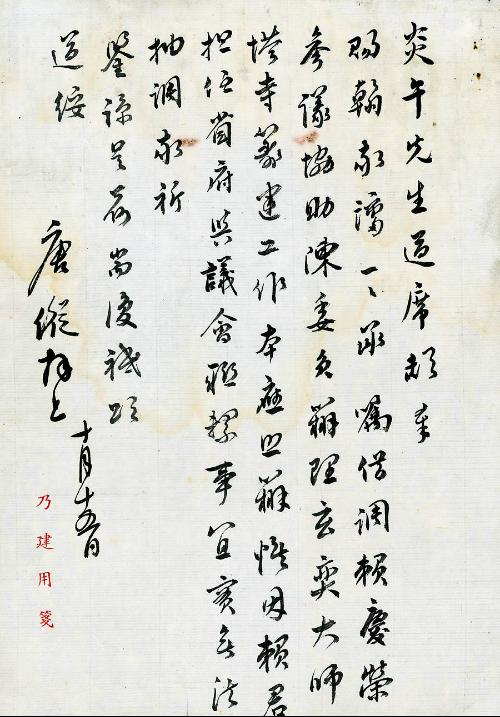 炎午先生道席頃奉
賜翰敬讅一一承囑借調賴慶榮
參議協助陳委員辦理玄奘大師
塔寺籌建工作本應照辦惟因賴君
担任省府與議會聯繫事宜實無法
抽調敬祈
鑒諒是荷耑復祗頌
道綏
唐縱拜上
十月十五日
乃建用箋